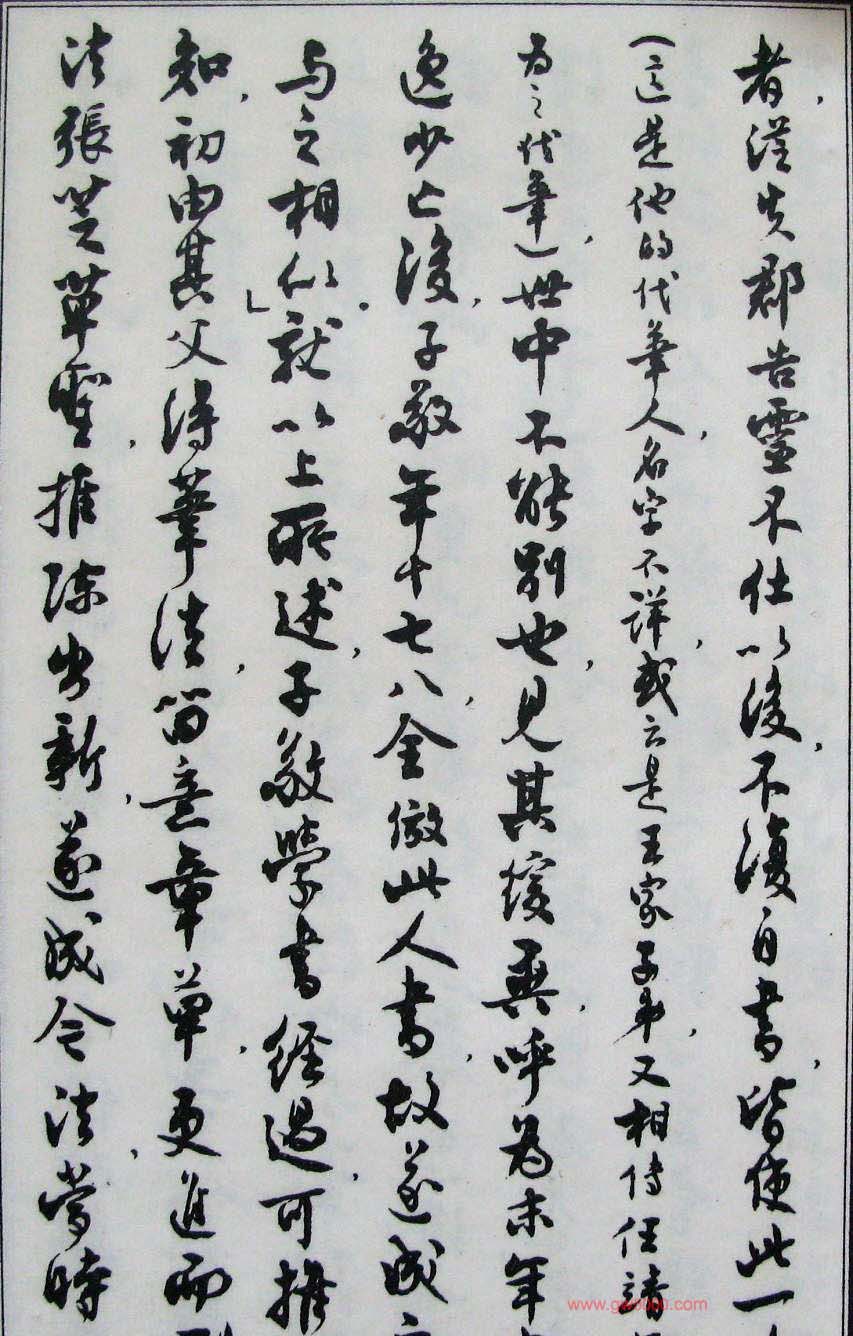 者，從失郡告靈不仕以後，不復自書，皆使此一
（這是他的代筆人，名字不詳，或云是王家子弟，又相傳任靖
为之代筆），世中不能别也，見其緩異，呼為末年
逸少亡後，子敬年十七八，全倣此人書，故遂成
与之相似」。就以上所述，子敬學書經過，可推
知，初由其父得筆法，留意章草，更進而
法張芝草聖，推陳出新，遂成今法，當時
www.gw8000.com